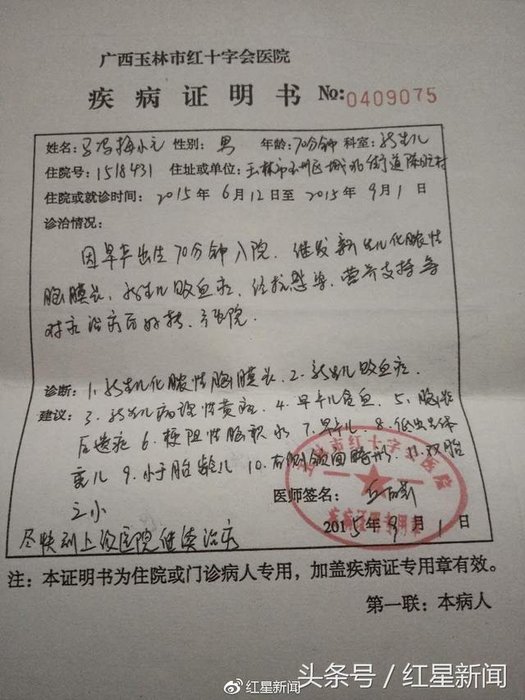 广西玉林市红十字会医院
疾病证明书 No:0409075
姓名: 梅小元 性别: 男 年龄: 70分钟 科室: 新生儿
住院号: 1518431 住址或单位: 玉林市玉州区城北街道陈 村
住院或就诊时间: 2015年6月12日至2015年9月1日
诊治情况:
因早产出生70分钟入院. 住院 新生儿化脓性
脑膜炎、新生儿败血症, 经抗感染、营养支持等
对症治疗后好转, 院.
诊断: 1. 新生儿化脓性脑膜炎 2. 新生儿败血症
建议: 3. 新生儿病理性黄疸 4. 早产儿贫血 5. 脑膜炎
后遗症 6. 梗阻性脑积水 7. 早产儿 8. 低出生体
重儿 9. 小于胎龄儿 10. 右侧 畸形 11. 双胎
之小
医师签名:
尽快到上级医院继续治疗
2015年9月1日
玉林市红十字会医院
疾病证明专用章
注: 本证明书为住院或门诊病人专用，加盖疾病证专用章有效。
第一联: 本病人
红星新闻
头条号 / 红星新闻